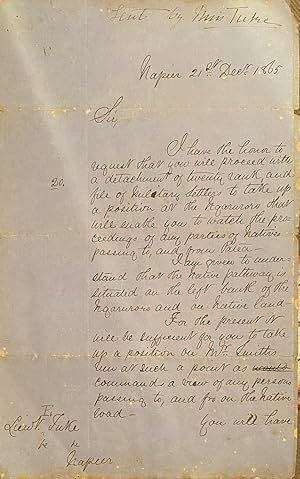 Sent by Miss Tuke
Napier 21st Decr 1865
Sir,
I have the honor to
request that you will proceed with
20. a detachment of twenty rank and
file of Military Settlers to take up
a position at the Ngaruroro that
will enable you to watch the pro-
ceedings of any parties of Natives
passing to, and from Patea—
I am given to under-
stand that the Native pathway is
situated on the left bank of the
Ngaruroro and on Native land—
For the present it
will be sufficient for you to take
up a position on Mr. Smiths
run at such a point as would
commands a view of any persons
passing to, and fro on the native
road—
You will have
Lieut. Tuke
Napier